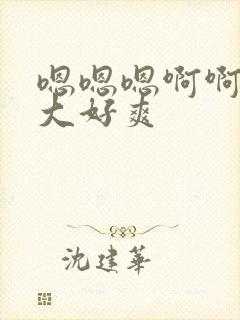 嗯嗯嗯啊啊
大好爽
沈建华